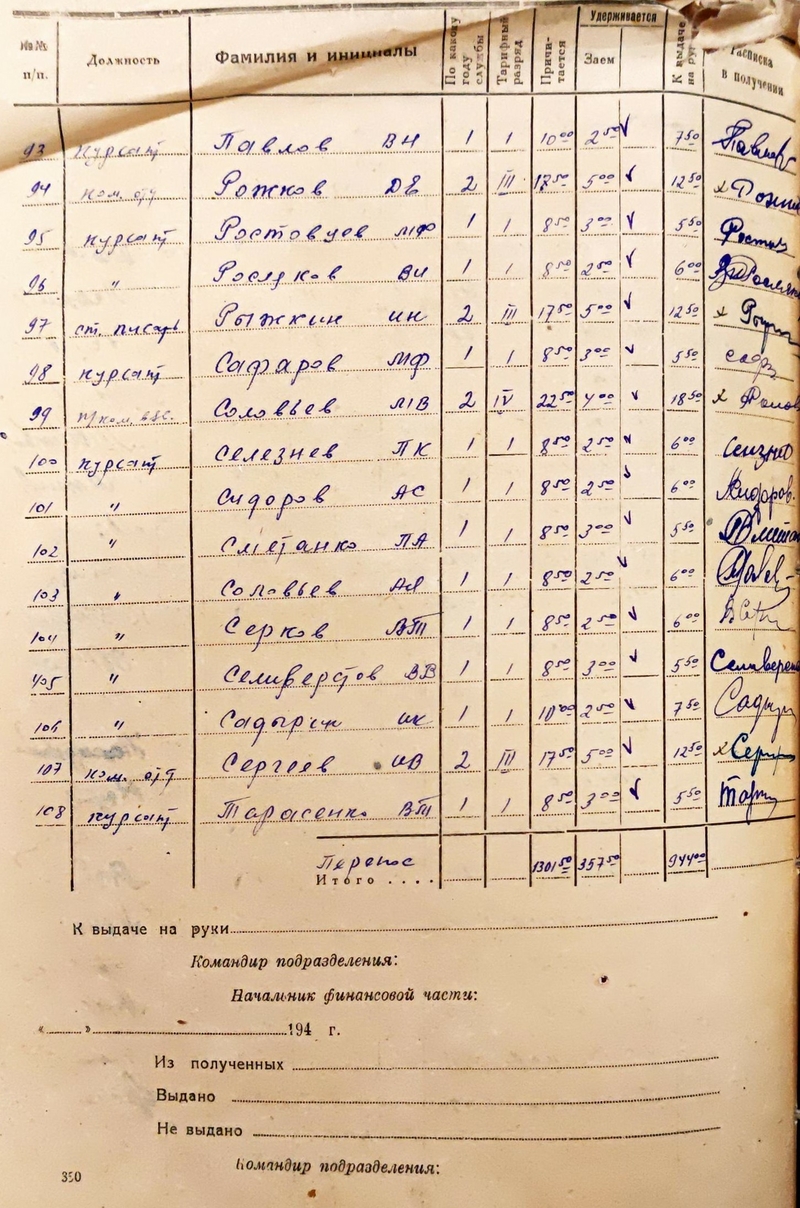 №№ п/п. Должность Фамилия и инициалы По какому году службы Тарифный разряд Причитается Удерживается Заем К выдаче на руки Расписка в получении
93 Курсант Павлов ВН 1 1 10 00 2 50 7 50 Павлов
94 ком. отд 2 III 17 50 5 00 12 50 Рожков ДЕ
95 курсант Ростовцев МФ 1 1 8 50 3 00 5 50
96 " Росляков ВИ 1 1 8 50 2 50 6 00
97 ст. писарь Рыжкин ИН 2 III 17 50 5 00 12 50
98 курсант Сафаров МФ 1 1 8 50 3 00 5 50
99 п/ком. взв. Соловьев МВ 2 IV 22 50 4 00 18 50
100 курсант Селезнев ПК 1 1 8 50 2 50 6 00
101 " Сидоров АС 1 1 8 50 2 50 6 00 Сидоров.
102 " Сметанко ПА 1 1 8 50 3 00 5 50
103 " Соловьев АЯ 1 1 8 50 2 50 6 00
104 " Серков ВТ 1 1 8 50 2 50 6 00
105 " Селиверстов ВВ 1 1 8 50 3 00 5 50
106 " Садырин ИК 1 1 10 00 2 50 7 50
107 ком. отд Сергеев ИВ 2 III 17 50 5 00 12 50
108 курсант Тарасенко ВТ 1 1 8 50 3 00 5 50
Перенос
Итого . . . . 1301 50 357 50 944 00
К выдаче на руки
Командир подразделения:
Начальник финансовой части:
« » 194 г.
Из полученных
Выдано
Не выдано
Командир подразделения:
350